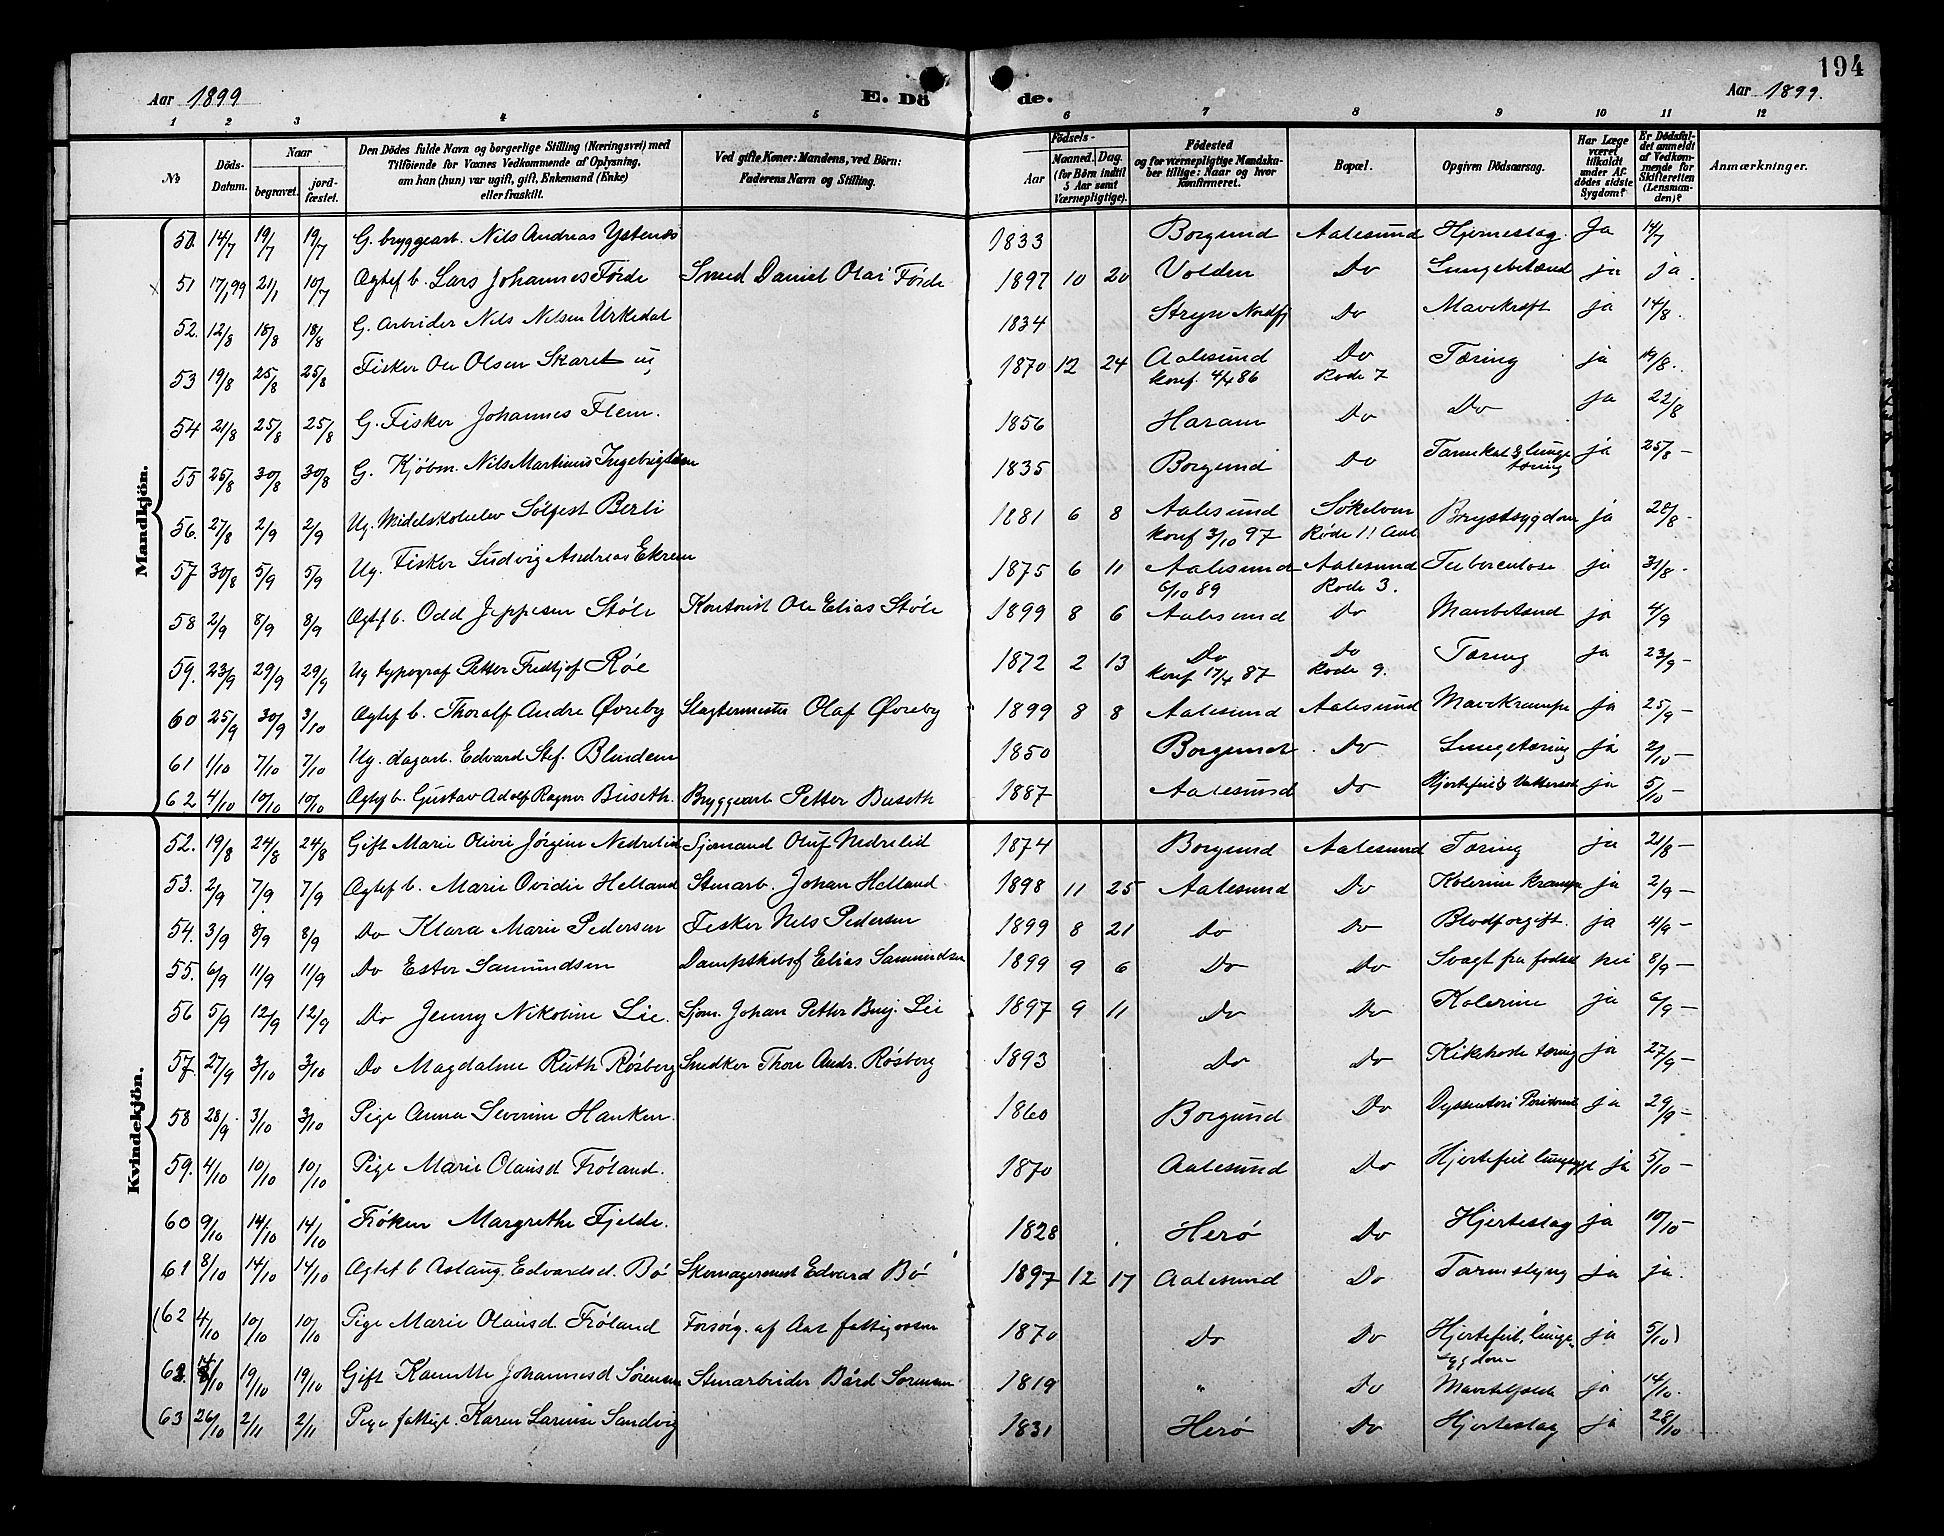 194
Aar 1899 E. Dö de. Aar 1899.
1 2 3 4 5 6 7 8 9 10 11 12
No Döds-Datum. Naar begravet. jord-fæstet. Den Dödes fulde Navn og borgerlige Stilling (Næringsvei) med Tilföiende for Voxnes Vedkommende af Oplysning, om han (hun) var ugift, gift, Enkemand (Enke) eller fraskilt. Ved gifte Koner: Mandens, ved Börn: Faderens Navn og Stilling. Födsels- Aar Maaned. Dag. (for Börn indtil 5 Aar samt Værnepligtige). Födested og for værnepligtige Mandskaber tillige: Naar og hvor konfirmeret. Bopæl. Opgiven Dödsaarsag. Har Læge været tilkaldt under Afdödes sidste Sygdom? Er Dödsfaldet anmeldt af Vedkommende for Skifteretten (Lensmanden)? Anmærkninger.
Mandkjön.
50. 14/7 19/7 19/7 G. bryggearb. Nils Andreas Ystenes 1833 Borgund Aalesund Hjerneslag. Ja 14/7
51 17/1 99 21/1 10/7 Ægtef b. Lars Johannes Förde Smed Daniel Olai Förde 1897 10 20 Volden Do Lungebetænd ja ja.
52. 12/8 18/8 18/8 G. Arbeider Nils Nilsen Urkedal 1834 Stryn Nordfj Do Mavekræft ja 14/8.
53 19/8 25/8 25/8 Fisker Ole Olsen Skaret 1870 12 24 Aalesund Do Tæring ja 19/8.
konf. 4/4 86 Rode 7
54 21/8 25/8 25/8 G. Fisker Johannes Flem. 1856 Haram Do Do ja 22/8
55 25/8 30/8 30/8 G. Kjöbm. Nils Martinus Ingebrigtsen 1835 Borgund Do Tarmkat & lunge tæring ja 25/8 -
56. 27/8 2/9 2/9 Ug. Midelskoleelev Sölfest Berli 1881 6 8 Aalesund Brystsygdom ja 28/8 -
konf 3/10 97 Rode 11 Aal
57 30/8 5/9 5/9 Ug. Fisker Ludvig Andreas Ekrem 1875 6 11 Aalesund Aalesund Tuberculose ja 31/8 -
6/10 89 Rode 3.
58 2/9 8/9 8/9 Ægtef b. Odd Jeppesen Stöle Kontorist Ole Elias Stöle 1899 8 6 Aalesund Do Mavebetænd ja 4/9
59. 23/9 29/9 29/9 Ug typograf Petter Fredtjof Röe 1872 2 13 Do Do Tæring ja 23/9 -
konf 17/4 87 Rode 9.
60 25/9 30/9 3/10 Ægtef b. Thoralf Andre Øvreby Slagtermester Olaf Øvreby 1899 8 8 Aalesund Aalesund Mavekrampe ja 25/9 -
61 1/10 7/10 7/10 Ug. dagarb. Edvard Stef. Blindem 1850 Borgund Do Lungetæring ja 2/10 -
62 4/10 10/10 10/10 Ægtef b. Gustav Adolf Ragnv. Buseth. Bryggearb Petter Buseth 1887 Aalesund Do Hjertefeil & Vattersot ja 5/10 -
Kvindekjön.
52. 19/8 24/8 24/8 Gift Marie Olivie Jörgine Nedrelid Sjömand Oluf Nedrelid 1874 Borgund Aalesund Tæring ja 21/8 -
53. 2/9 7/9 7/9 Ægtef b. Marie Ovidie Helland Stenarb. Johan Helland. 1898 11 25 Aalesund Do Kolerine krampe ja 2/9 -
54. 3/9 8/9 8/9 Do Klara Marie Pedersen Fisker Nils Pedersen 1899 8 21 Do Do Blodforgift. ja 4/9 -
55. 6/9 11/9 11/9 Do Ester Samundsen Elias Samundsen 1899 9 6 Do Do Svagt fra födsel nei 8/9 -
56 5/9 12/9 12/9 Do Jenny Nikoline Lie. Sjöm. Johan Petter Benj. Lie 1897 9 11 Do Do Kolerine ja 6/9 -
57. 27/9 3/10 3/10 Do Magdalene Ruth Rösberg Snedker Thore Andr. Rösberg 1893 Do Do Kikhoste tæring ja 27/9 -
58 28/9 3/10 3/10 Pige Anna Severine Hanken. 1860 Borgund Do Dyssenteri ja 29/9 -
59. 4/10 10/10 10/10 Pige Marie Olausd Fröland. 1870 Aalesund Do Hjertefeil lungesygd ja 5/10 -
60 9/10 14/10 14/10 Fröken Margrethe Fjelde. 1828 Herö Do Hjerteslag ja 10/10 -
61 8/10 14/10 14/10 Ægtef b Aslaug Edvardsd. Bö Skomagermest Edvard Bö 1897 12 17 Aalesund Do Tarmslyng ja ja.
(62 4/10 10/10 10/10 Pige Marie Olausd. Fröland Forsörg. af Aal fattigvæsen 1870 Do Do Hjertefeil, lunge- ja 5/10)
sygdom
62. 19/10 19/10 Gift Kanutte Johannesd Sörensen Stenarbeider Bård Sörensen 1819 " Do ja 14/10.
63 26/10 2/11 2/11 Pige fattigl. Karen Larnise Sandvig 1831 Herö Do Hjerteslag ja 28/10